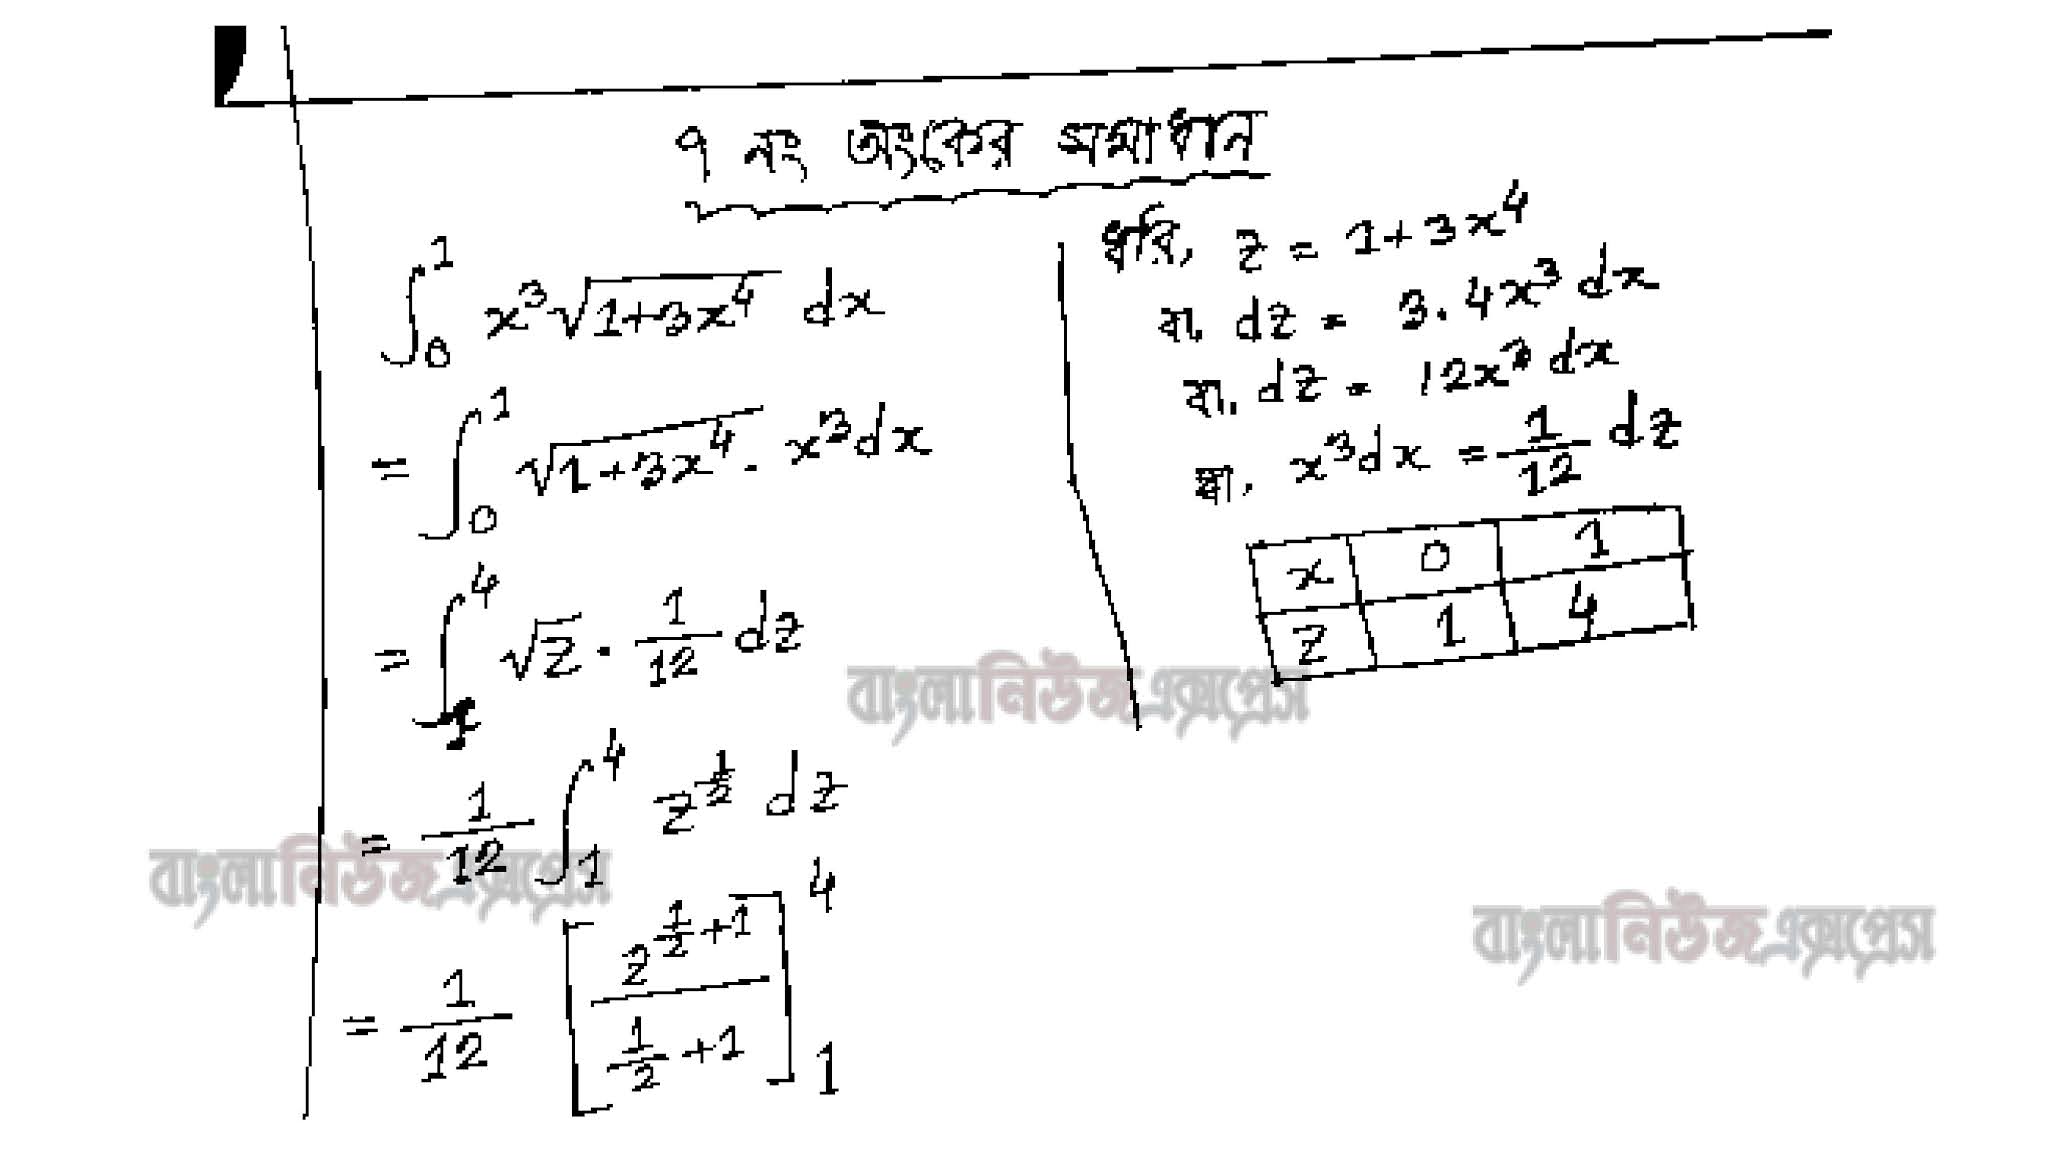 ৭ নং অংকের সমাধান
∫₀¹ x³√(1+3x⁴) dx
= ∫₀¹ √(1+3x⁴) . x³dx
= ∫₁⁴ √z . 1/12 dz
= 1/12 ∫₁⁴ z^(1/2) dz
= 1/12 [ z^(1/2 + 1) / (1/2 + 1) ]₁⁴
ধরি, z = 1+3x⁴
বা, dz = 3.4x³ dx
বা, dz = 12x³ dx
বা, x³dx = 1/12 dz
x 0 1
z 1 4
বাংলানিউজএক্সপ্রেস
বাংলানিউজএক্সপ্রেস
বাংলানিউজএক্সপ্রেস